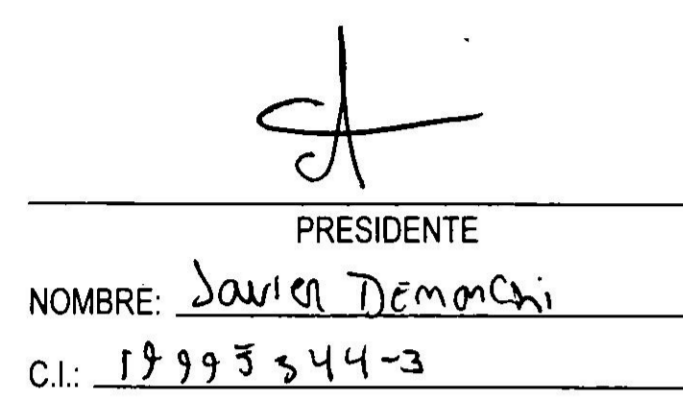 PRESIDENTE
NOMBRE: Javier Demarchi
C.I.: 19995344-3